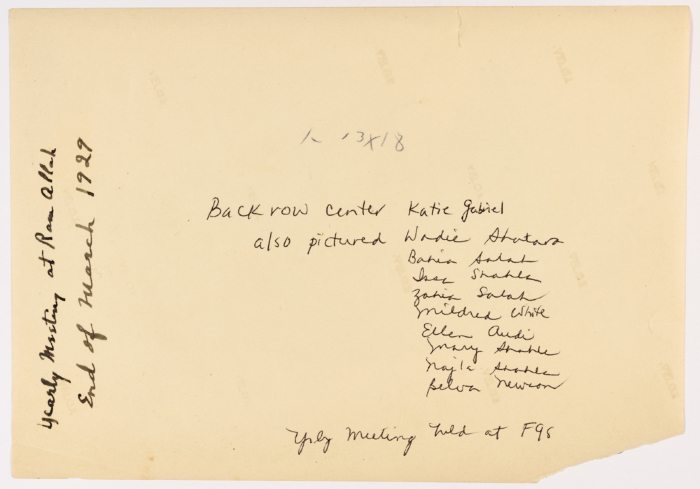 Yearly Meeting at Ram Allah
End of March 1929
1- 13x18
Back row center Katie Gabriel
also pictured Wadie Shatara
Bahia Salah
Issa Shahla
Zahia Salah
Mildred White
Ellen Audi
Mary Shahla
Najla Shahla
Belva Newson
Yrly Meeting held at FGS